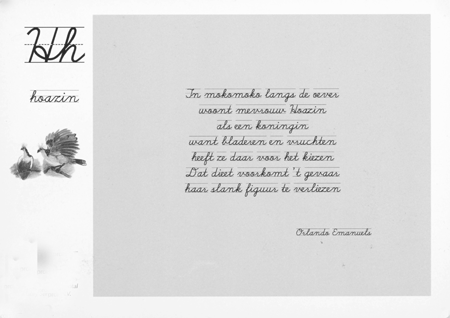 Hh
hoazin
In mokomoko langs de oever
woont mevrouw Hoazin
als een koningin
want bladeren en vruchten
heeft ze daar voor het kiezen
Dat dieet voorkomt 't gevaar
haar slank figuur te verliezen
Orlando Emanuels